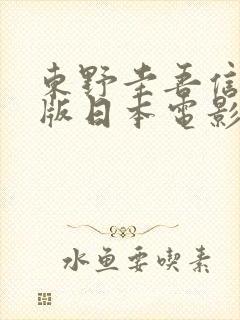 東野圭吾信
版日本電影
水魚要喫素